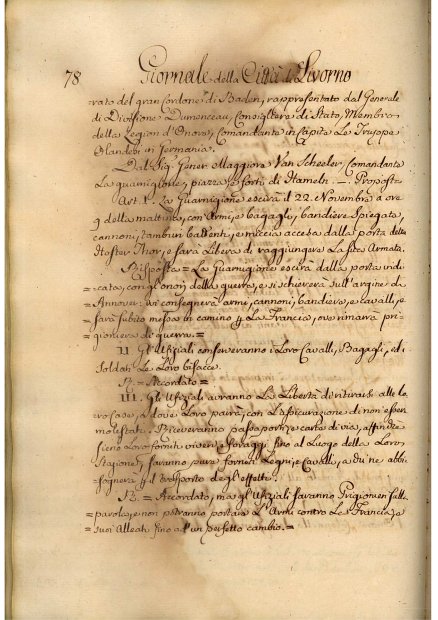 78 Giornale della Città di Livorno
rato del gran Cordone di Baden, rappresentato dal Generale
di Divisione Dumonceau, Consigliere di Stato, Membro
della Legion d'Onore, Comandante in Capite Le Truppe
Olandesi in Germania.
Dal Sig.r Gener. Maggiore Van Scheeler, Comandante
La guarnigione, piazza, e forti di Hameln. = Propost.
Art. I. La Guarnigione escirà il 22. Novembre a ore
9 della mattina, con Armi, e bagagli, bandiere spiegate,
cannoni, tamburi battenti, e miccia accesa dalla porta detta
Hoster Thor, e sarà Libera di raggiungere La sua Armata.
Risposta = La Guarnigione escirà dalla porta indi=
=cata, con gl'onori della guerra, e si schiererà sull'argine di
Annover: ivi consegnerà armi, cannoni, bandiere, e cavalli, e
sarà subito messa in camino p. La Francia, ove rimarrà pri=
=gioniera di guerra. =
II. Gl'Ufiziali conserveranno i Loro Cavalli, Bagagli, ed i
Soldati Le Loro bisacce.
R. = Accordato =
III. Gl'Ufiziali avranno La Libertà di ritirarsi alle lo=
ro Case, o dove Loro parrà, con L'assicurazione di non esser
molestati. Riceveranno passaporti, e carte di via, affinche
sieno Loro forniti viveri, e foraggi fino al Luogo della Loro
Stazione, saranno pure forniti Legni, e Cavalli, a chi ne abbi=
=sognerà p. il trasporto degl'effetti.
R. = Accordato, ma gl'Ufiziali saranno Prigionieri sulla
=parola, e non potranno portare L'Armi contro La Francia, e
suoi Alleati fino ad un perfetto cambio. =